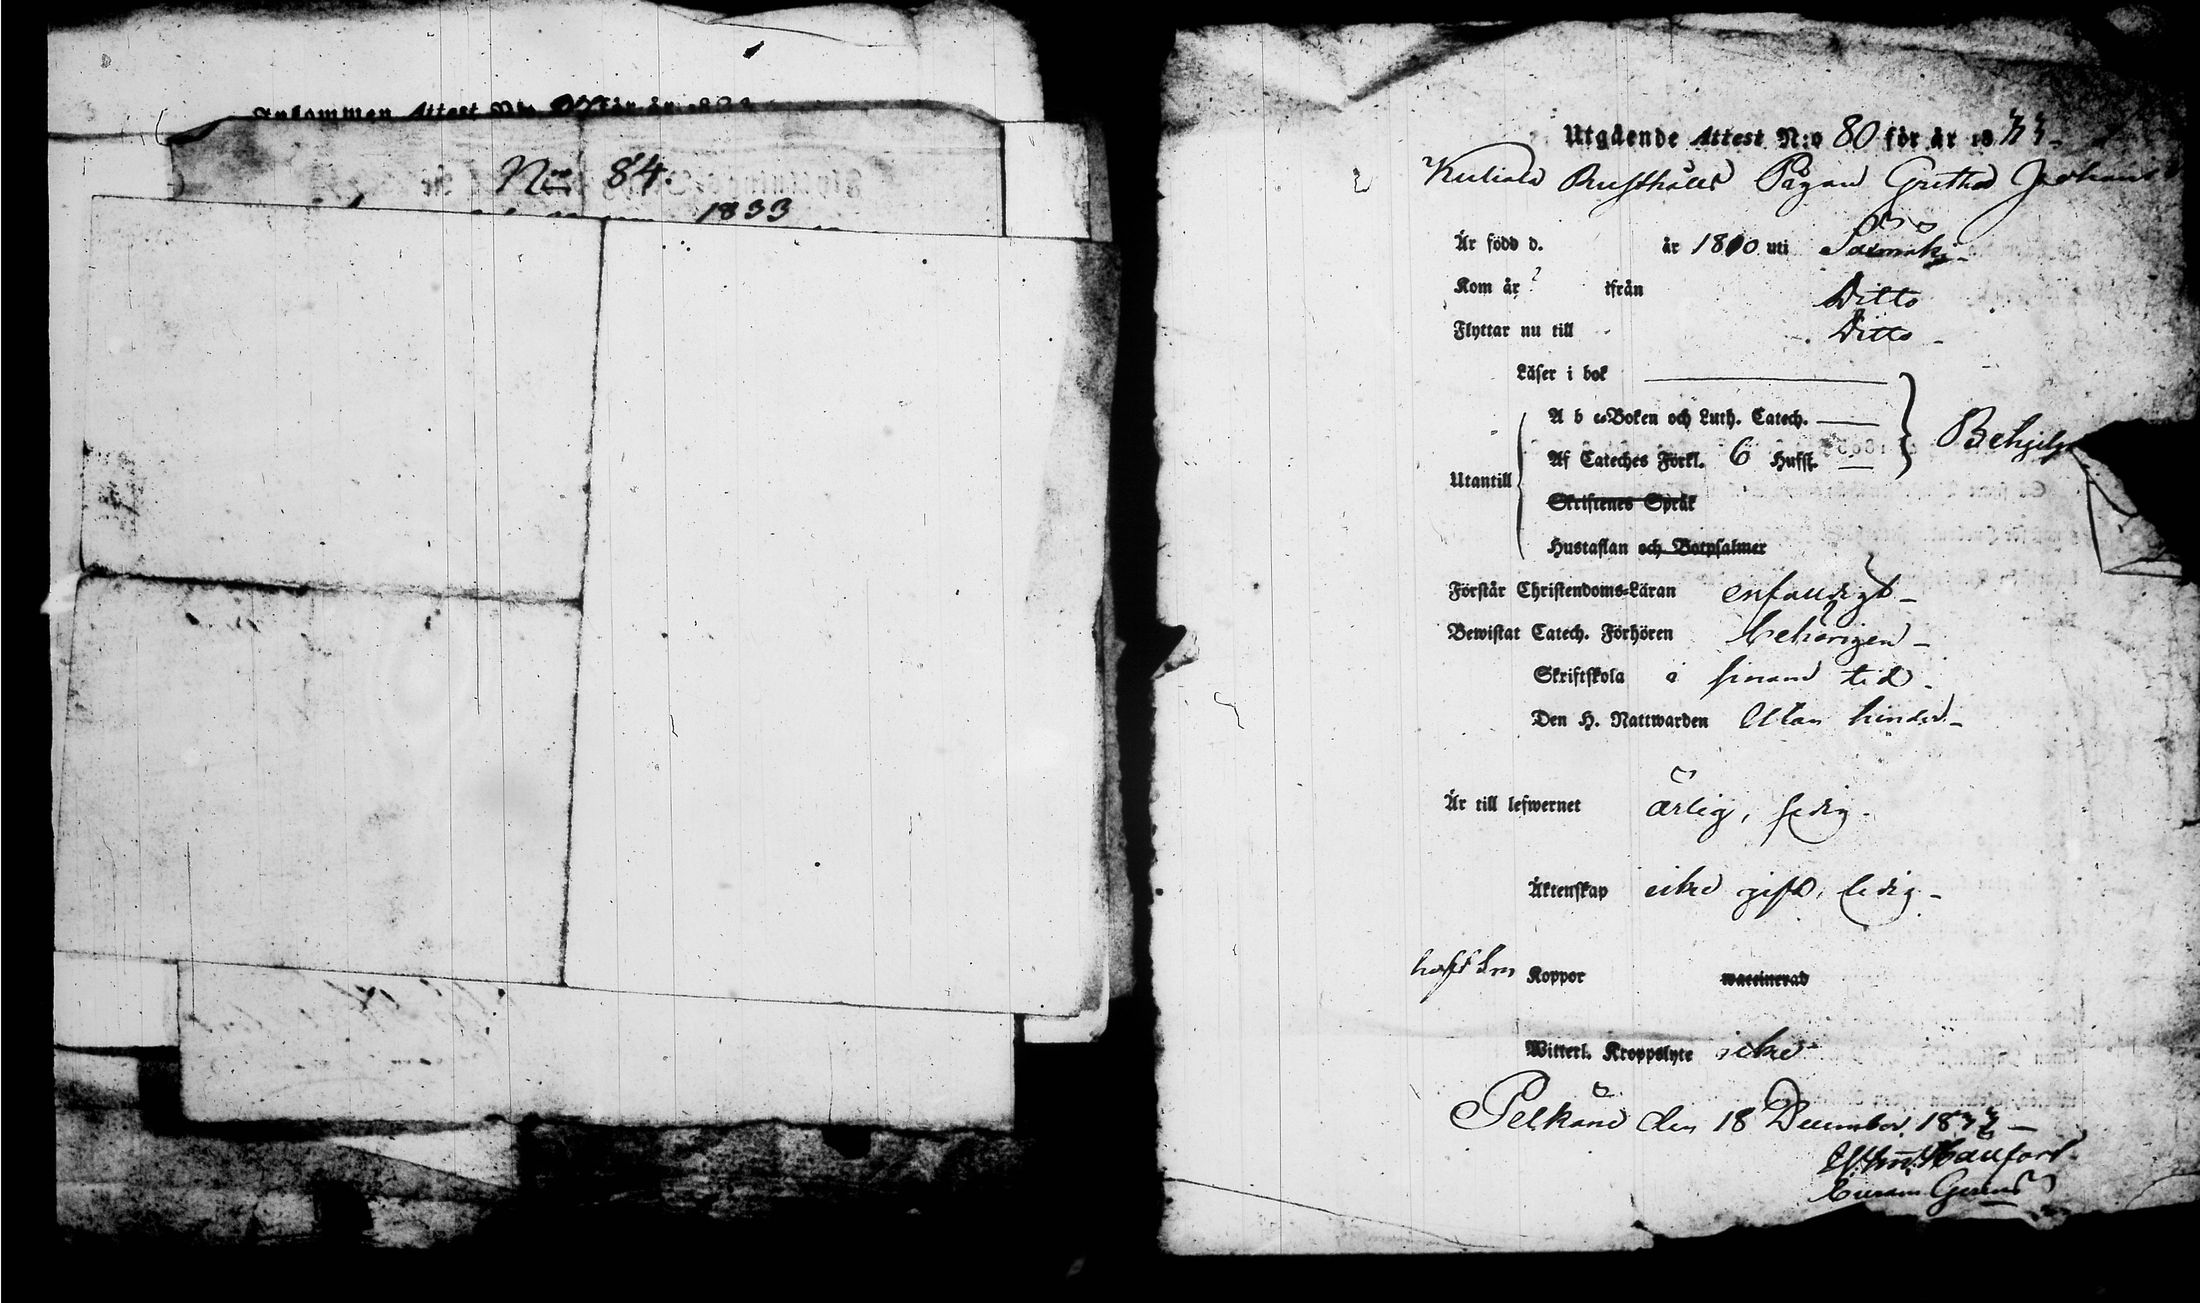 Inkommen Attest N:o för år 1833
N:o 84.
1833
Utgående Attest N:o 80 för år 1833
Kuliala Rusthålls Pigan Gretha Johans
Är född d. år 1810 uti
Kom år ? ifrån Ditto
Flyttar nu till Ditto
Läser i bok
A b c-Boken och Luth. Catech.
Af Cateches Förkl. 6 Hufst.
Behjelp
Utantill
Skriftenes Språk
Hustaflan och Botpsalmer
Förstår Christendoms-Läran enfaldigt
Bewistat Catech. Förhören behörigen
Skriftskola i sinom tid
Den H. Nattwarden Utan hinder
Är till lefwernet ärlig, sedig
Äktenskap icke gift, ledig
haft Koppor waccinerad
Witterl. Kroppslyte icke
Pelkäne den 18 December 1833